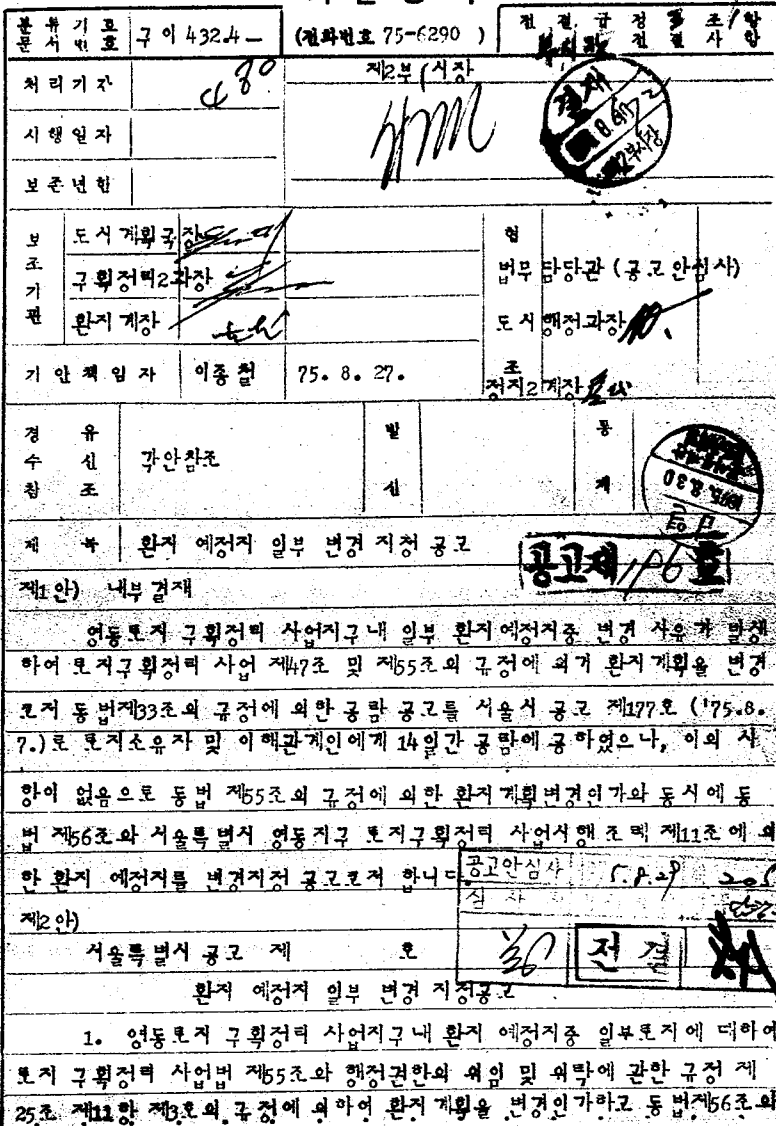 분류기호
문서번호
구이 432.4 — (전화번호 75-6290)
전결규정 조 항
전결사항
처리기간
제2부시장
시행일자
보존년한
결재
제2부시장
보조기관
도시계획국장
구획정리2과장
환지계장
협조
법무담당관 (공고안심사)
도시행정과장
정지2계장
기안책임자 이종철 75. 8. 27.
경유
수신 각안참조
참조
발신
통제
1975.8.30
제목 환지 예정지 일부 변경 지정 공고
공고제 196 호
제1안) 내부결재
영동토지 구획정리 사업지구내 일부 환지예정지중 변경 사유가 발생
하여 토지구획정리 사업 제47조 및 제55조의 규정에 의거 환지계획을 변경
코저 동법제33조의 규정에 의한 공람 공고를 서울시 공고 제177호 ('75.8.
7.)로 토지소유자 및 이해관계인에게 14일간 공람에 공하였으나, 이의 사
항이 없음으로 동법 제55조의 규정에 의한 환지계획변경인가와 동시에 동
법 제56조와 서울특별시 영동지구 토지구획정리 사업시행 조례 제11조에 의
한 환지 예정지를 변경지정 공고코저 합니다.
공고안심사
심사
전결
제2안)
서울특별시 공고 제 호
환지 예정지 일부 변경 지정공고
1. 영동토지 구획정리 사업지구내 환지 예정지중 일부토지에 대하여
토지 구획정리 사업법 제55조와 행정권한의 위임 및 위탁에 관한 규정 제
25조 제11항 제3호의 규정에 의하여 환지 계획을 변경인가하고 동법제56조의